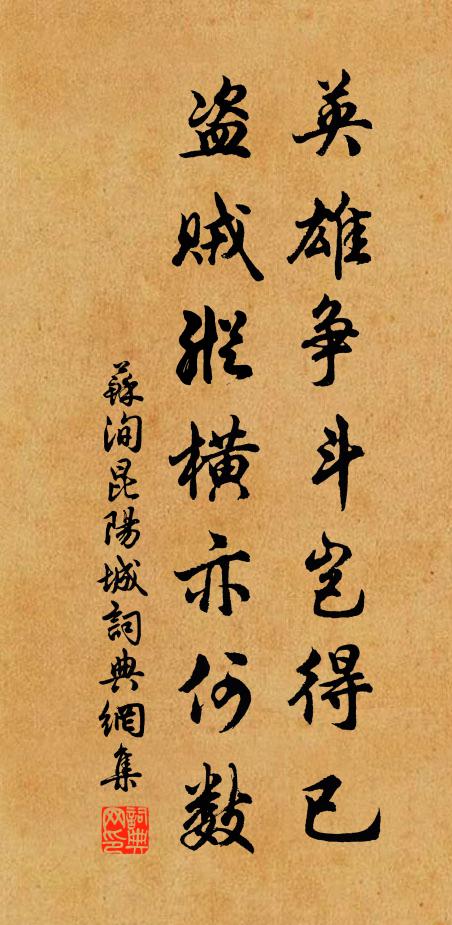 英雄争斗岂得已
盗贼縱橫亦何数
蘇洵昆陽城詞典網集
詞典网印